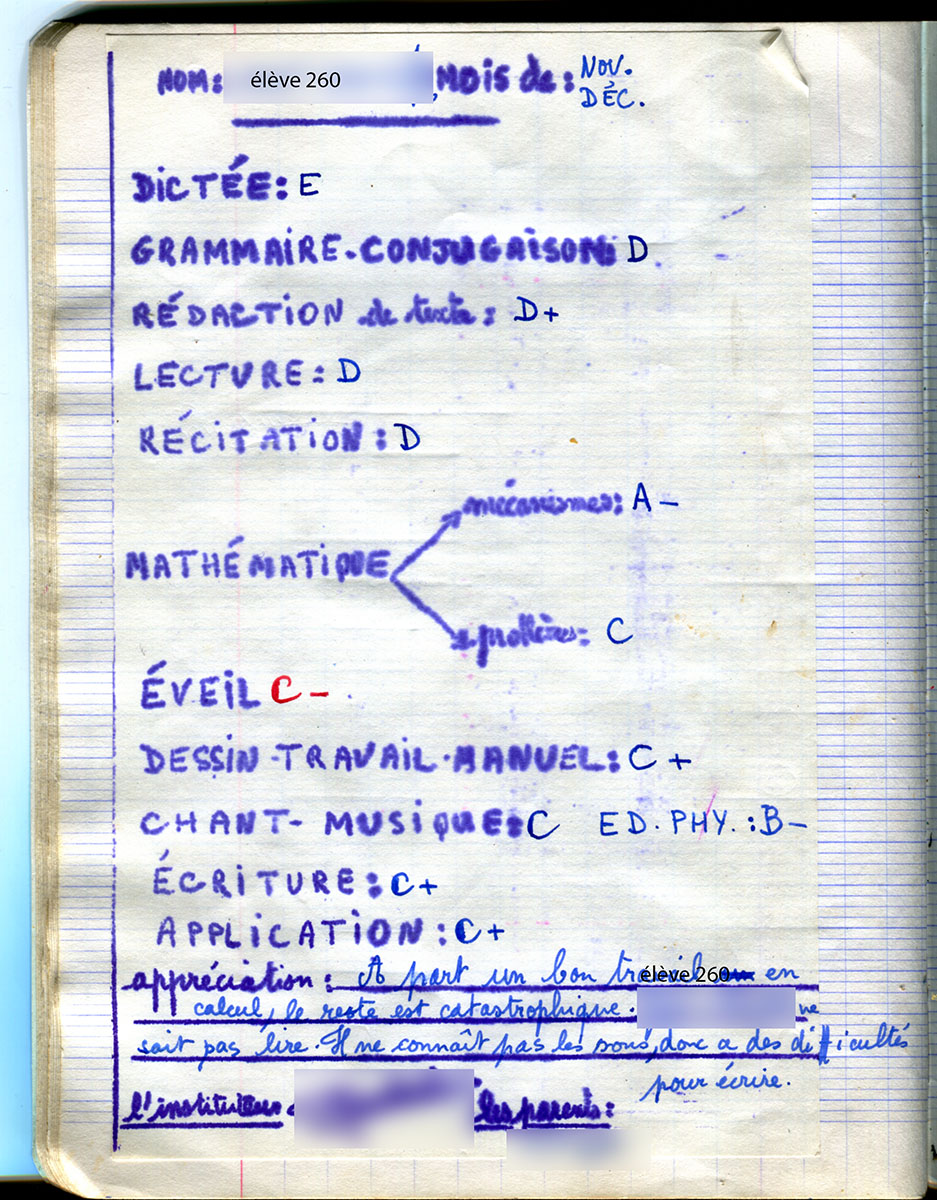 NOM: élève 260 MOIS de: NOV.
DÉC.
DICTÉE: E
GRAMMAIRE-CONJUGAISON: D
RÉDACTION de texte: D+
LECTURE: D
RÉCITATION: D
mécanismes: A-
MATHÉMATIQUE
problèmes: C
ÉVEIL C-
DESSIN-TRAVAIL-MANUEL: C+
CHANT-MUSIQUE: C ED. PHY. : B-
ÉCRITURE: C+
APPLICATION: C+
appréciation: A part un bon travail élève 260 en
calcul, le reste est catastrophique. ne
sait pas lire. Il ne connaît pas les sons, donc a des difficultés
pour écrire.
l'instituteur les parents: